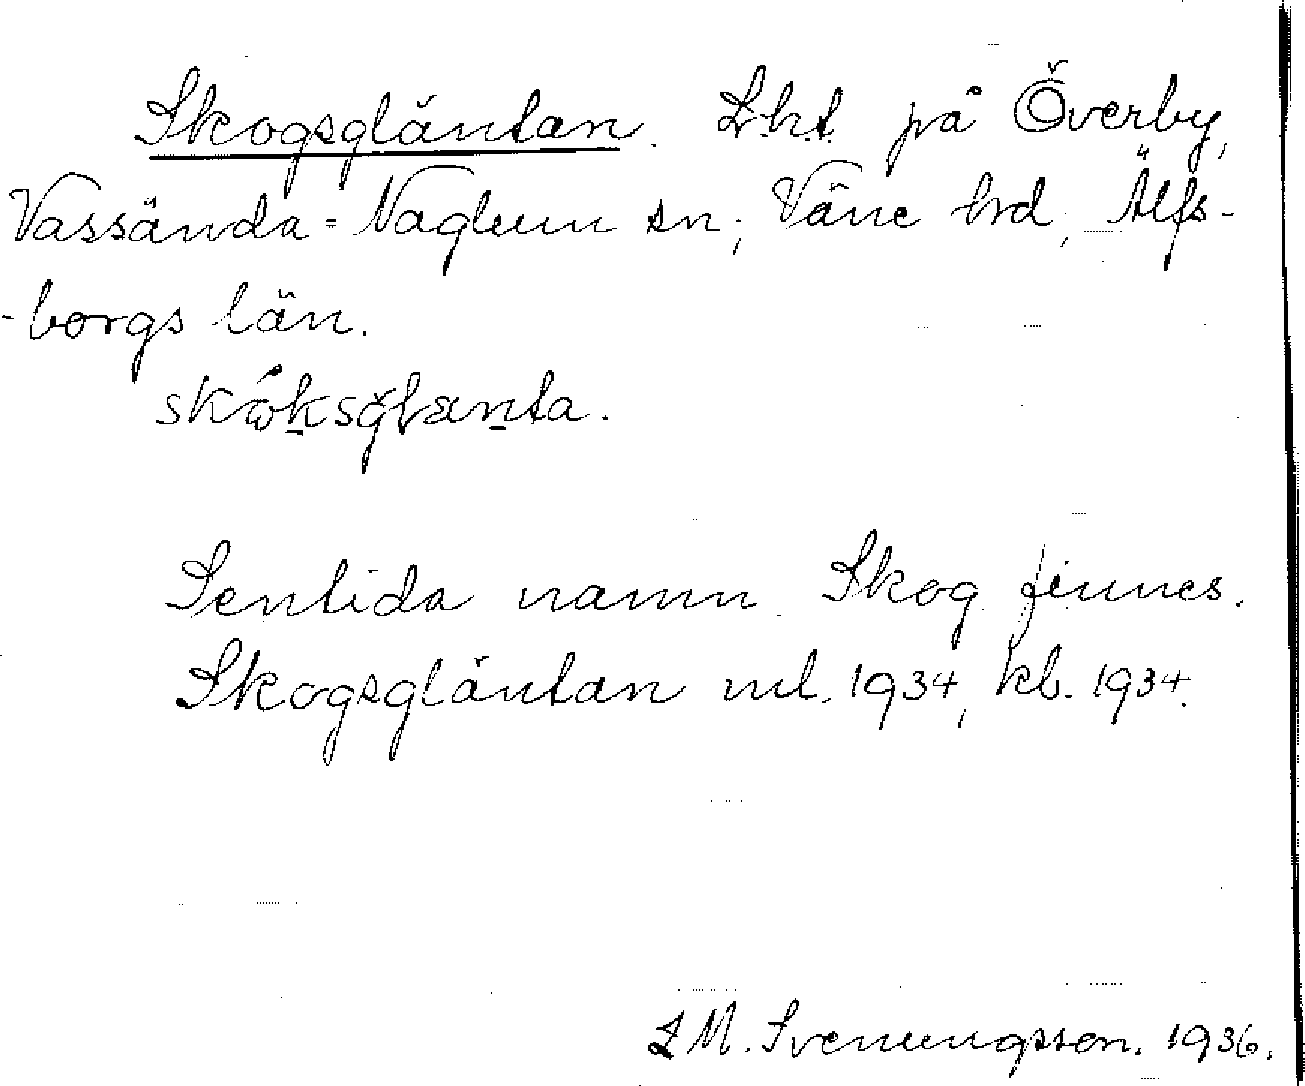 Skogsgläntan. Lht. på Överby,
Vassända=Naglum sn, Väne hd, Älfs-
-borgs län.
Sentida namn. Skog finnes.
Skogsgläntan ml. 1934, kb. 1934.
L M. Svenungsson. 1936.